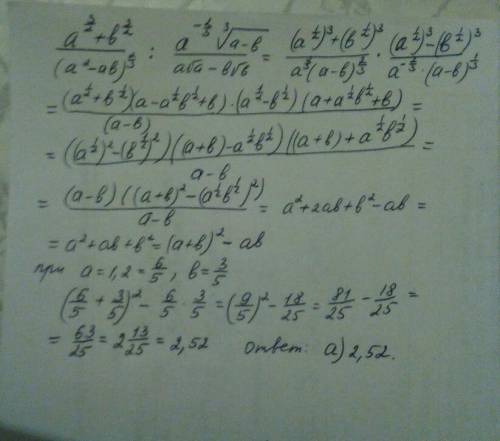 (a^{3/2} + b^{3/2}) / (a² - ab)^{2/3} : (a^{-2/3} ∛(a-b)) / (a√a - b√b) = ((a^{1/2})³ + (b^{1/2})³) / (a^{2/3} (a-b)^{2/3}) · ((a^{1/2})³ - (b^{1/2})³) / (a^{-2/3} · (a-b)^{1/3})
= (a^{1/2} + b^{1/2})(a - a^{1/2}b^{1/2} + b) · (a^{1/2} - b^{1/2})(a + a^{1/2}b^{1/2} + b) / (a-b) =
= ((a^{1/2})² - (b^{1/2})²)((a+b) - a^{1/2}b^{1/2})((a+b) + a^{1/2}b^{1/2}) / a-b =
= (a-b)((a+b)² - (a^{1/2}b^{1/2})²) / a-b = a² + 2ab + b² - ab =
= a² + ab + b² = (a+b)² - ab
при a = 1,2 = 6/5, b = 3/5
(6/5 + 3/5)² - 6/5 · 3/5 = (9/5)² - 18/25 = 81/25 - 18/25 =
= 63/25 = 2 13/25 = 2,52 ответ: а) 2,52.